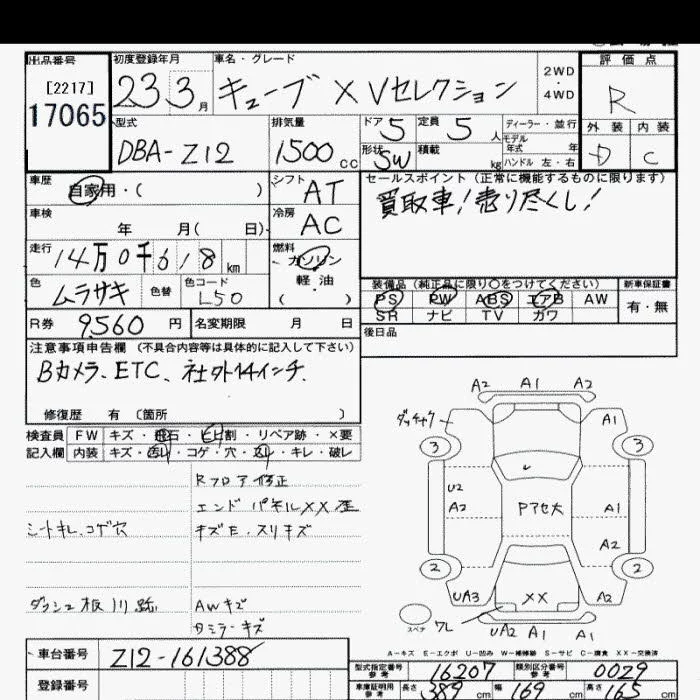 出品番号 初度登録年月 車名・グレード 評価点
[2217]
17065
23 3月 キューブ X Vセレクション
2WD
4WD
R
外装 内装
D C
型式 DBA-Z12
排気量 1500 cc
ドア 5 定員 5 人
形状 SW 積載 kg
ディーラー・並行
モデル年式 年
ハンドル 左・右
車歴 自家用・( )
シフト AT
セールスポイント (正常に機能するものに限ります)
買取車!売り尽くし!
車検 年 月( 日)
冷房 AC
走行 14万0千618 km
燃料 ガソリン
軽・油
( )
色 ムラサキ 色替 色コード L50
装備品 (純正品に限り○をつけてください) 新車保証書
PS PW ABS エアB AW
SR ナビ TV カワ
有・無
R券 9,560 円 名変期限 月 日
後日品
注意事項申告欄 (不具合内容等は具体的に記入して下さい)
Bカメラ、ETC、社外14インチ、
修復歴 有 〔箇所 〕
検査員 FW キズ・飛石・ヒビ割・リペア跡・×要
記入欄 内装 キズ・汚レ・コゲ・穴・スレ・キレ・破レ
Rフロア修正
エンドパネルXX歪
シートキレ、コゲ穴 キズE、スリキズ
ダッシュ板剥跡 AWキズ
Rミラーキズ
A2 A1 A2
A1
3 3
U2
A2 Pアセ大 A1
A2
2 2
UA3 XX A2
スペア ワレ UA2 A1 A1
A-キズ E-エクボ U-凹み W-補修跡 S-サビ C-腐食 XX-交換済
車台番号 Z12-161388
型式指定番号 参考 16207 類別区分番号 参考 0029
登録番号
車庫証明用 参考 長さ 389 cm 幅 169 cm 高さ 165 cm